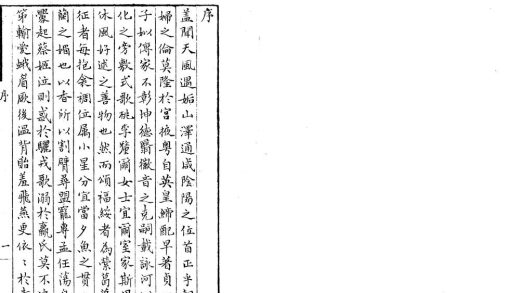 序
蓋聞天風遇姤山澤通咸陰陽之位首正乎
婦之倫莫隆於宮掖粵自英皇締配早著貞
子姒傳家不彰坤德爵徽音之克嗣載詠河
化之旁敷式歌桃李釐爾女士宜爾室家斯
休風好逑之善物也然而頌福綏者為縈葛
征者每抱衾裯位属小星分宜當夕魚之貫
蘭之媚也以香所以割臂尋盟寵專孟任蕩
釁起蔡姬泣則惑於驪戎歌溺於嬴氏莫不
第輸愛蛾眉厥後溫背貽羞飛燕更依依於
序
一